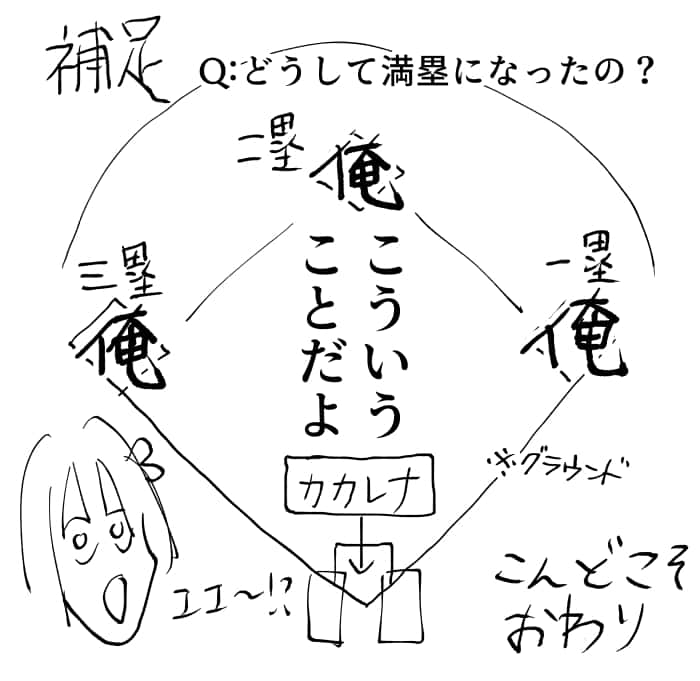 補足
Q:どうして満塁になったの？
二塁
俺
三塁
俺
一塁
俺
こういう
ことだよ
カカレナ
※グラウンド
エエ～!?
こんどこそ
おわり